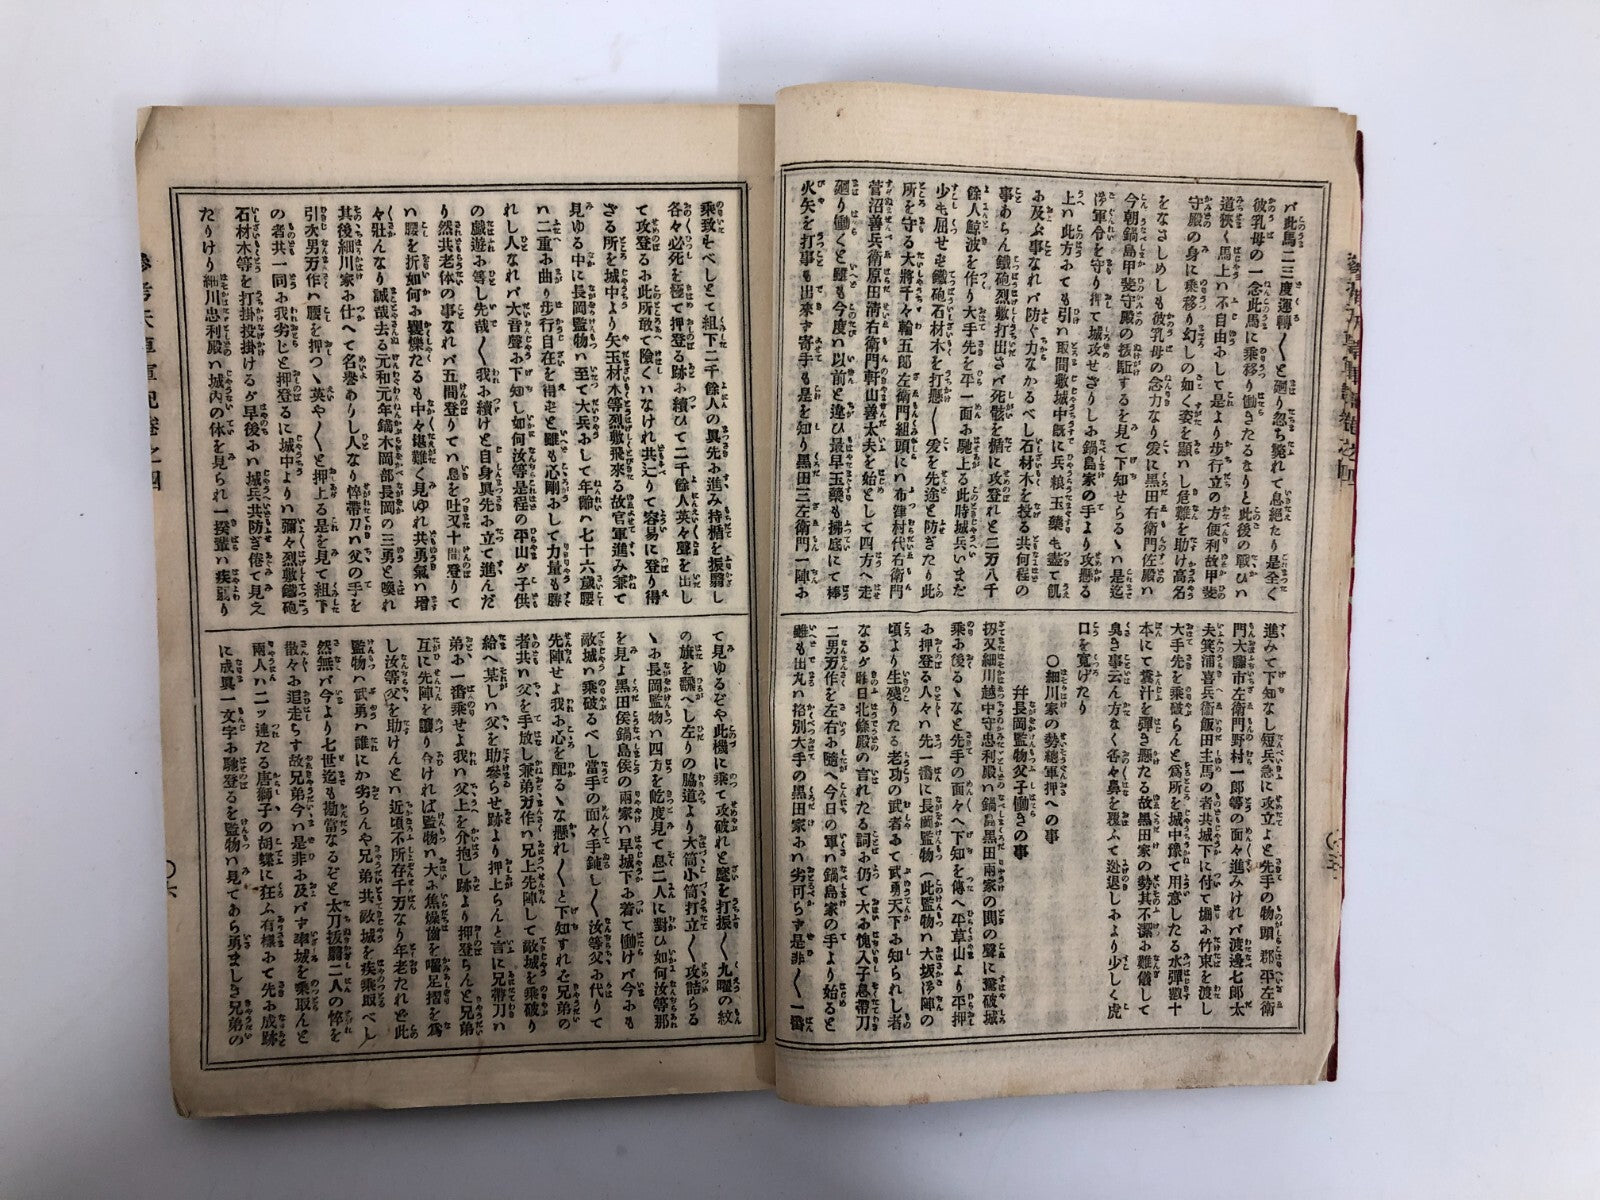 バ此馬二三度運轉〱と廻り忽ち斃れて息絕たり是全く
彼乳母の一念此馬に乘移り働きたるなりと此後の戰ひハ
道狹く馬上ハ不自由おして是より步行立の方便利故甲斐
守殿の身に乘移り幻しの如く姿を顯ハし危難を助け高名
をなさしめしも彼乳母の念力なり爰に黑田右衞門佐殿ハ
今朝鍋島甲斐守殿の拔駈するを見て下知せらるゝハ是迄
軍令を守り押て城攻せざりしお鍋島家の手より攻懸る
上ハ此方おても引ハ取間敷城中旣に兵粮玉藥も盡て飢
お及ぶ事なれバ防ぐ力なかるべし石材木を投る共何程の
事あらん鐵砲烈敷打出さバ死骸を楯に攻登れと二万八千
餘人鯨波を作り大手先を平一面お馳上る此時城兵いまだ
少も屈せを鐵砲石材木を打懸〱爰を先途と防ぎたり此
所を守る大將千々輪五郎左衞門組頭にハ布津村代右衞門
菅沼善兵衞原田淸右衞門軒山善太夫を始として四方へ走
廻り働くと雖も今度ハ以前と違ひ最早玉藥も拂底にて棒
火矢を打事も出來ず寄手も是を知り黑田三左衞門一陣お
進みて下知なし短兵急に攻立よと先手の物頭郡平左衞
門大藤市左衞門野村一郎等の面々進みけれバ渡邊七郎太
夫箕浦喜兵衞飯田主馬の者共城下に付て堀お竹束を渡し
大手先を乘破らんと爲所を城中豫て用意したる水彈數十
本にて糞汁を彈き懸たる故黑田家の勢其不潔お難儀して
臭き事云ん方なく各々鼻を覆ふて迯退しおより少しく虎
口を寬げたり
〇細川家の勢總軍押への事
幷長岡監物父子働きの事
扨又細川越中守忠利殿ハ鍋島黑田兩家の鬨の聲に驚破城
乘お後るゝなと先手の面々へ下知を傳へ平草山より平押
お押登る人々ハ先一番に長岡監物（此監物ハ大坂陣の
頃より生殘りたる老功の武者おて武勇天下お知られし者
なるが昨日北條殿の言れたる詞お仍て大お愧入子息帶刀
二男万作を左右お隨へ今日の軍ハ鍋島家の手より始ると
雖も出丸ハ格別大手の黑田家おハ劣可らず是非〱一番
乘致をべしとて組下二千餘人の眞先お進み持楯を振翳し
各々必死を極て押登る跡お續ひて二千餘人英々聲を出し
て攻登るお此所敢て險くハなけれ共辷りて容易に登り得
ざる所を城中より矢玉材木等烈敷飛來る故官軍進み兼て
見ゆる中に長岡監物ハ至て大兵おして年齡ハ七十六歲腰
ハ二重お曲り步行自在を得をと雖も心剛おして力量も勝
れし人なれバ大音聲お下知し如何汝等是程の平山が子供
の戲遊お等し先哉〱我お續けと自身眞先お立て進んだ
り然共老体の事なれバ五間登りてハ息を吐又十間登りて
ハ腰を折如何お矍鑠たるも中々堪難く見ゆれ共勇氣ハ增
々壯んなり誠哉去る元和元年鏑木岡部長岡の三勇と喚れ
其後細川家お仕へて名譽ありし人なり悴帶刀ハ父の手を
引次男万作ハ腰を押つゝ英や〱と押上る是を見て組下
の者共一同お我劣じと押登るに城中よりハ彌々烈敷鐵砲
石材木等を打掛投掛けるが早後おハ城兵共防ぎ倦て見え
たりけり細川忠利殿ハ城內の体を見られ一揆輩ハ疾弱り
て見ゆるぞや此機に乘て攻破れと麾を打振〱九曜の紋
の旗を飜へし左りの脇道より大筒小筒打立〱攻詰らる
ゝお長岡監物ハ四方を屹度見て息二人に對ひ如何汝等那
を見よ黑田侯鍋島侯の兩家ハ早城下お着て働けバ今おも
敵城ハ乘破るべし當手の面々手鈍し〱汝等父お代りて
先陣せよ我お心を配るゝな懸れ〱と下知すれど兄弟の
者共ハ父を手放し兼弟万作ハ兄上先陣して敵城を乘破り
給へ某しハ父を助參らせ跡より押上らんと言に兄帶刀ハ
弟お一番乘せよ我ハ父上を介抱し跡より押登らんと兄弟
互に先陣を讓り合ければ監物ハ大お焦燥齒を囓足摺を爲
し汝等父を助けんとハ近頃不所存千万なり年老たれど此
監物ハ武勇ハ誰にか劣らんや兄弟共敵城を疾乘取べし
然無バ今より七世迄も勘當なるぞと太刀拔翳二人の悴を
散々お追走らす故兄弟今ハ是非お及バず率城を乘取んと
兩人ハ二ッ連たる唐獅子の胡蝶に狂ふ有樣おて先お成跡
に成眞一文字お馳登るを監物ハ見てあら勇ましき兄弟の
參考天草軍記卷之四
〇六